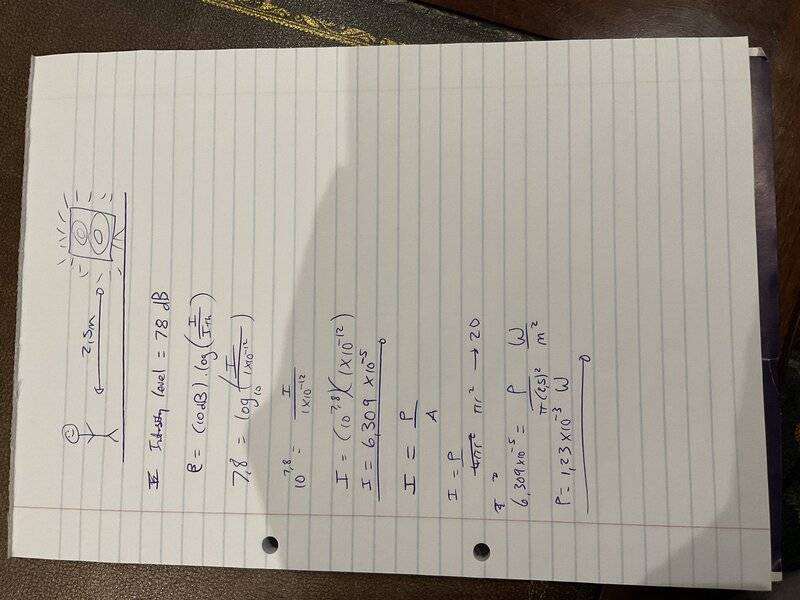 2,5m
Intensity level = 78 dB
β = (10dB) . log (I / I th)
7,8 = log10 (I / 1x10^-12)
10^7,8 = I / 1x10^-12
I = (10^7,8)(1x10^-12)
I = 6,309 x10^-5
I = P / A
I = P / 4πr² πr² → 2D
6,309x10^-5 = P / π(2,5)² W / m²
P = 1,23x10^-3 W